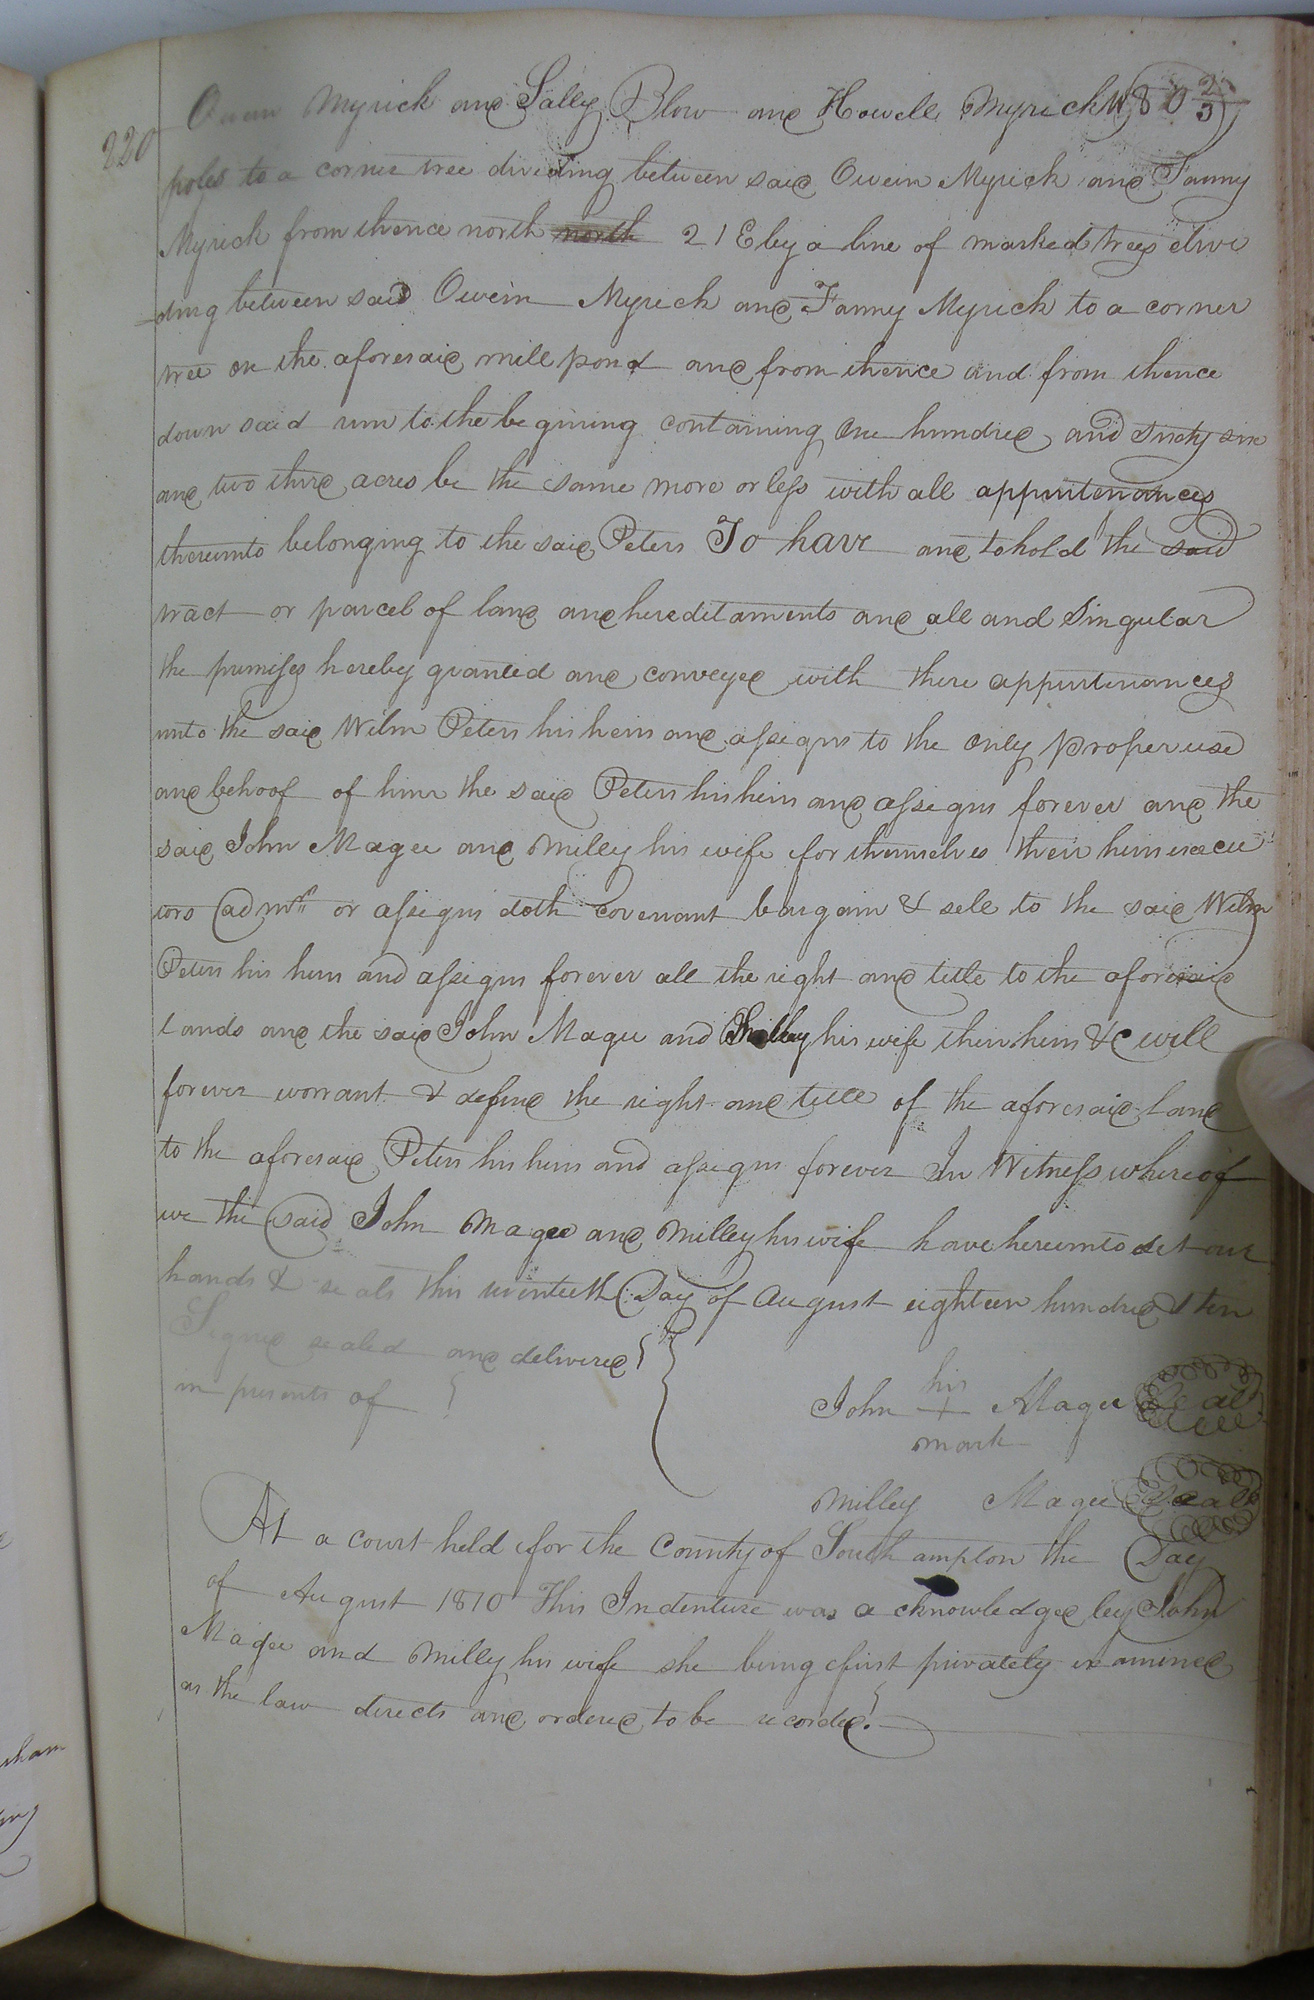 220
Owin Myrick and Sally Blow and Howell Myrick W 80 2/3
poles to a corner tree dividing between said Owein Myrick and Fanny
Myrick from thence north north 21 E by a line of marked trees divi
ding between said Owein Myrick and Fanny Myrick to a corner
tree on the aforesaid mill pond and from thence and from thence
down said run to the begining containing One hundred and Sixty six
and two third acres be the same more or less with all appurtenances
thereunto belonging to the said Peters To have and to hold the said
tract or parcel of land and hereditaments and all and Singular
the premises hereby granted and conveyed with there appurtenances
unto the said Wilm Peters his heirs and assigns to the only proper use
and behoof of him the said Peters his heirs and assigns forever and the
said John Magee and Milley his wife for themselves their heirs execu
tors admrs or assigns doth covenant bargain & sell to the said Wilm
Peters his heirs and assigns forever all the right and title to the aforesaid
lands and the said John Magee and Milley his wife their heirs &c will
forever warrant & defend the right and title of the aforesaid land
to the aforesaid Peters his heirs and assigns forever In Witness whereof
we the said John Magee and Milley his wife have hereunto set our
hands & seals this Day of August eighteen hundred & ten
Signed sealed and delivered
in presents of
his
John + Magee Seal
mark
Milley Magee Seal
At a court held for the County of Southampton the Day
of August 1810 This Indenture was acknowledged by John
Magee and Milley his wife she being first privately examined
as the law directs and ordered to be recorded.